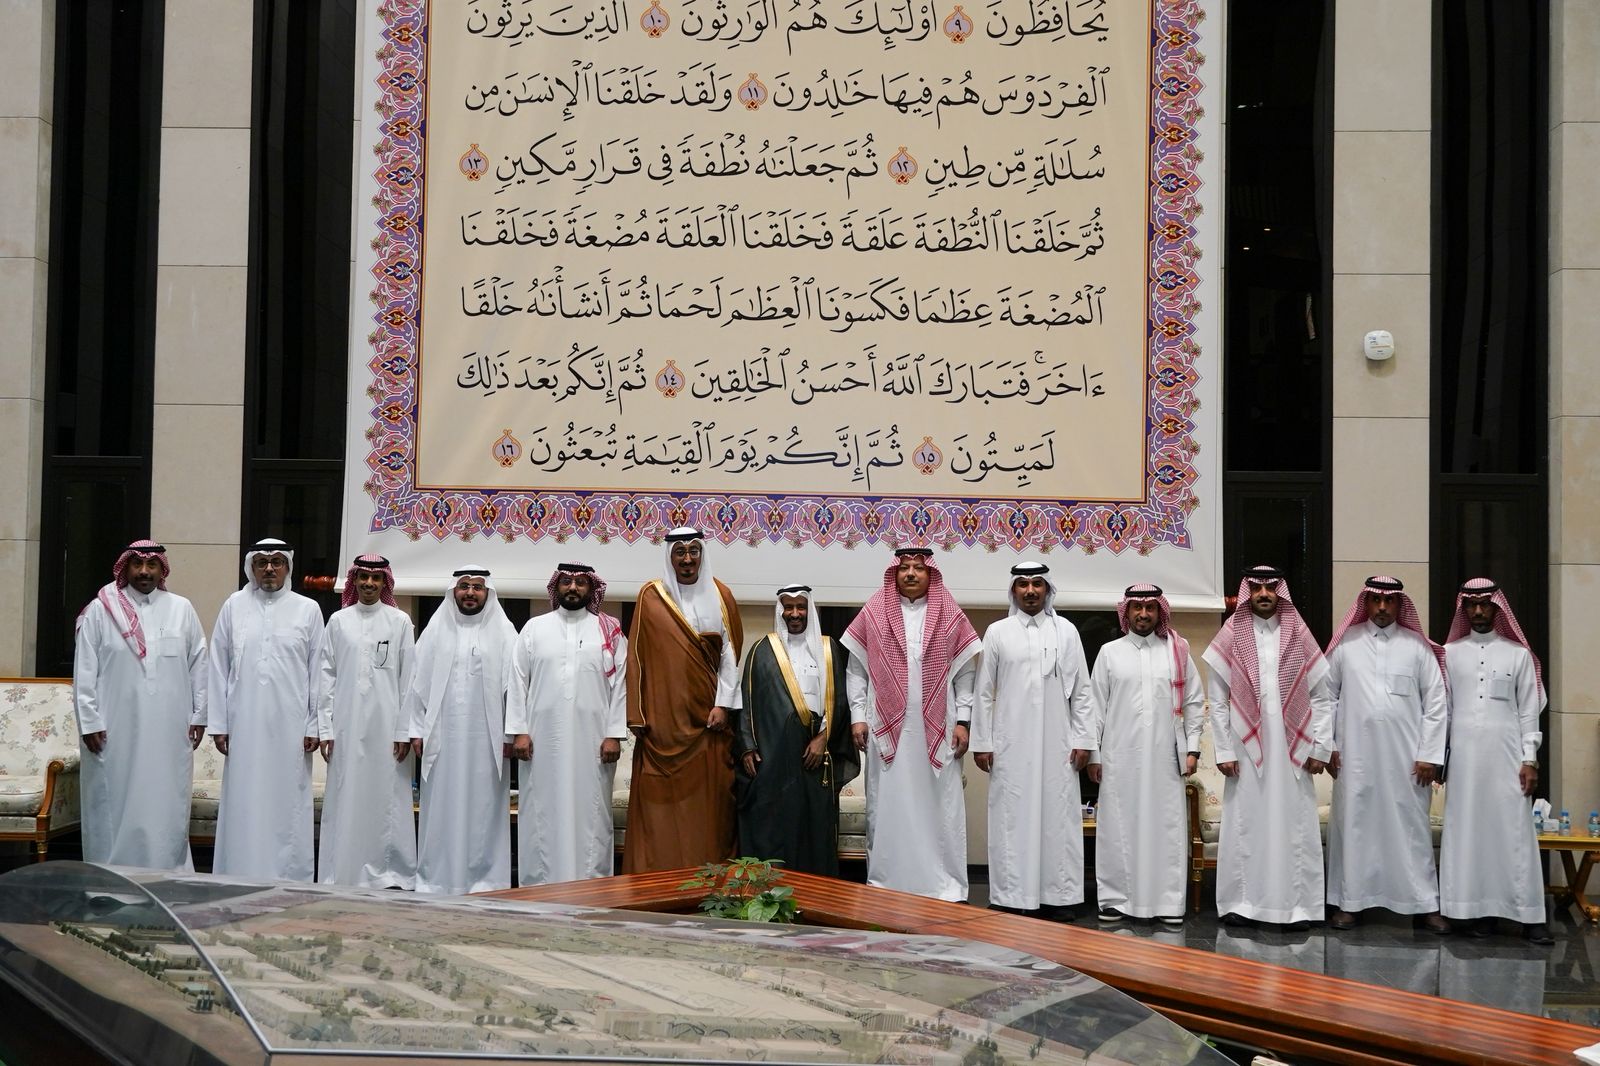 يُحَافِظُونَ ٩ أُوْلَٰٓئِكَ هُمُ ٱلْوَٰرِثُونَ ١٠ ٱلَّذِينَ يَرِثُونَ
ٱلْفِرْدَوْسَ هُمْ فِيهَا خَٰلِدُونَ ١١ وَلَقَدْ خَلَقْنَا ٱلْإِنسَٰنَ مِن
سُلَٰلَةٍ مِّن طِينٍ ١٢ ثُمَّ جَعَلْنَٰهُ نُطْفَةً فِى قَرَارٍ مَّكِينٍ ١٣
ثُمَّ خَلَقْنَا ٱلنُّطْفَةَ عَلَقَةً فَخَلَقْنَا ٱلْعَلَقَةَ مُضْغَةً فَخَلَقْنَا
ٱلْمُضْغَةَ عِظَٰمًا فَكَسَوْنَا ٱلْعِظَٰمَ لَحْمًا ثُمَّ أَنشَأْنَٰهُ خَلْقًا
ءَاخَرَۚ فَتَبَارَكَ ٱللَّهُ أَحْسَنُ ٱلْخَٰلِقِينَ ١٤ ثُمَّ إِنَّكُم بَعْدَ ذَٰلِكَ
لَمَيِّتُونَ ١٥ ثُمَّ إِنَّكُمْ يَوْمَ ٱلْقِيَٰمَةِ تُبْعَثُونَ ١٦